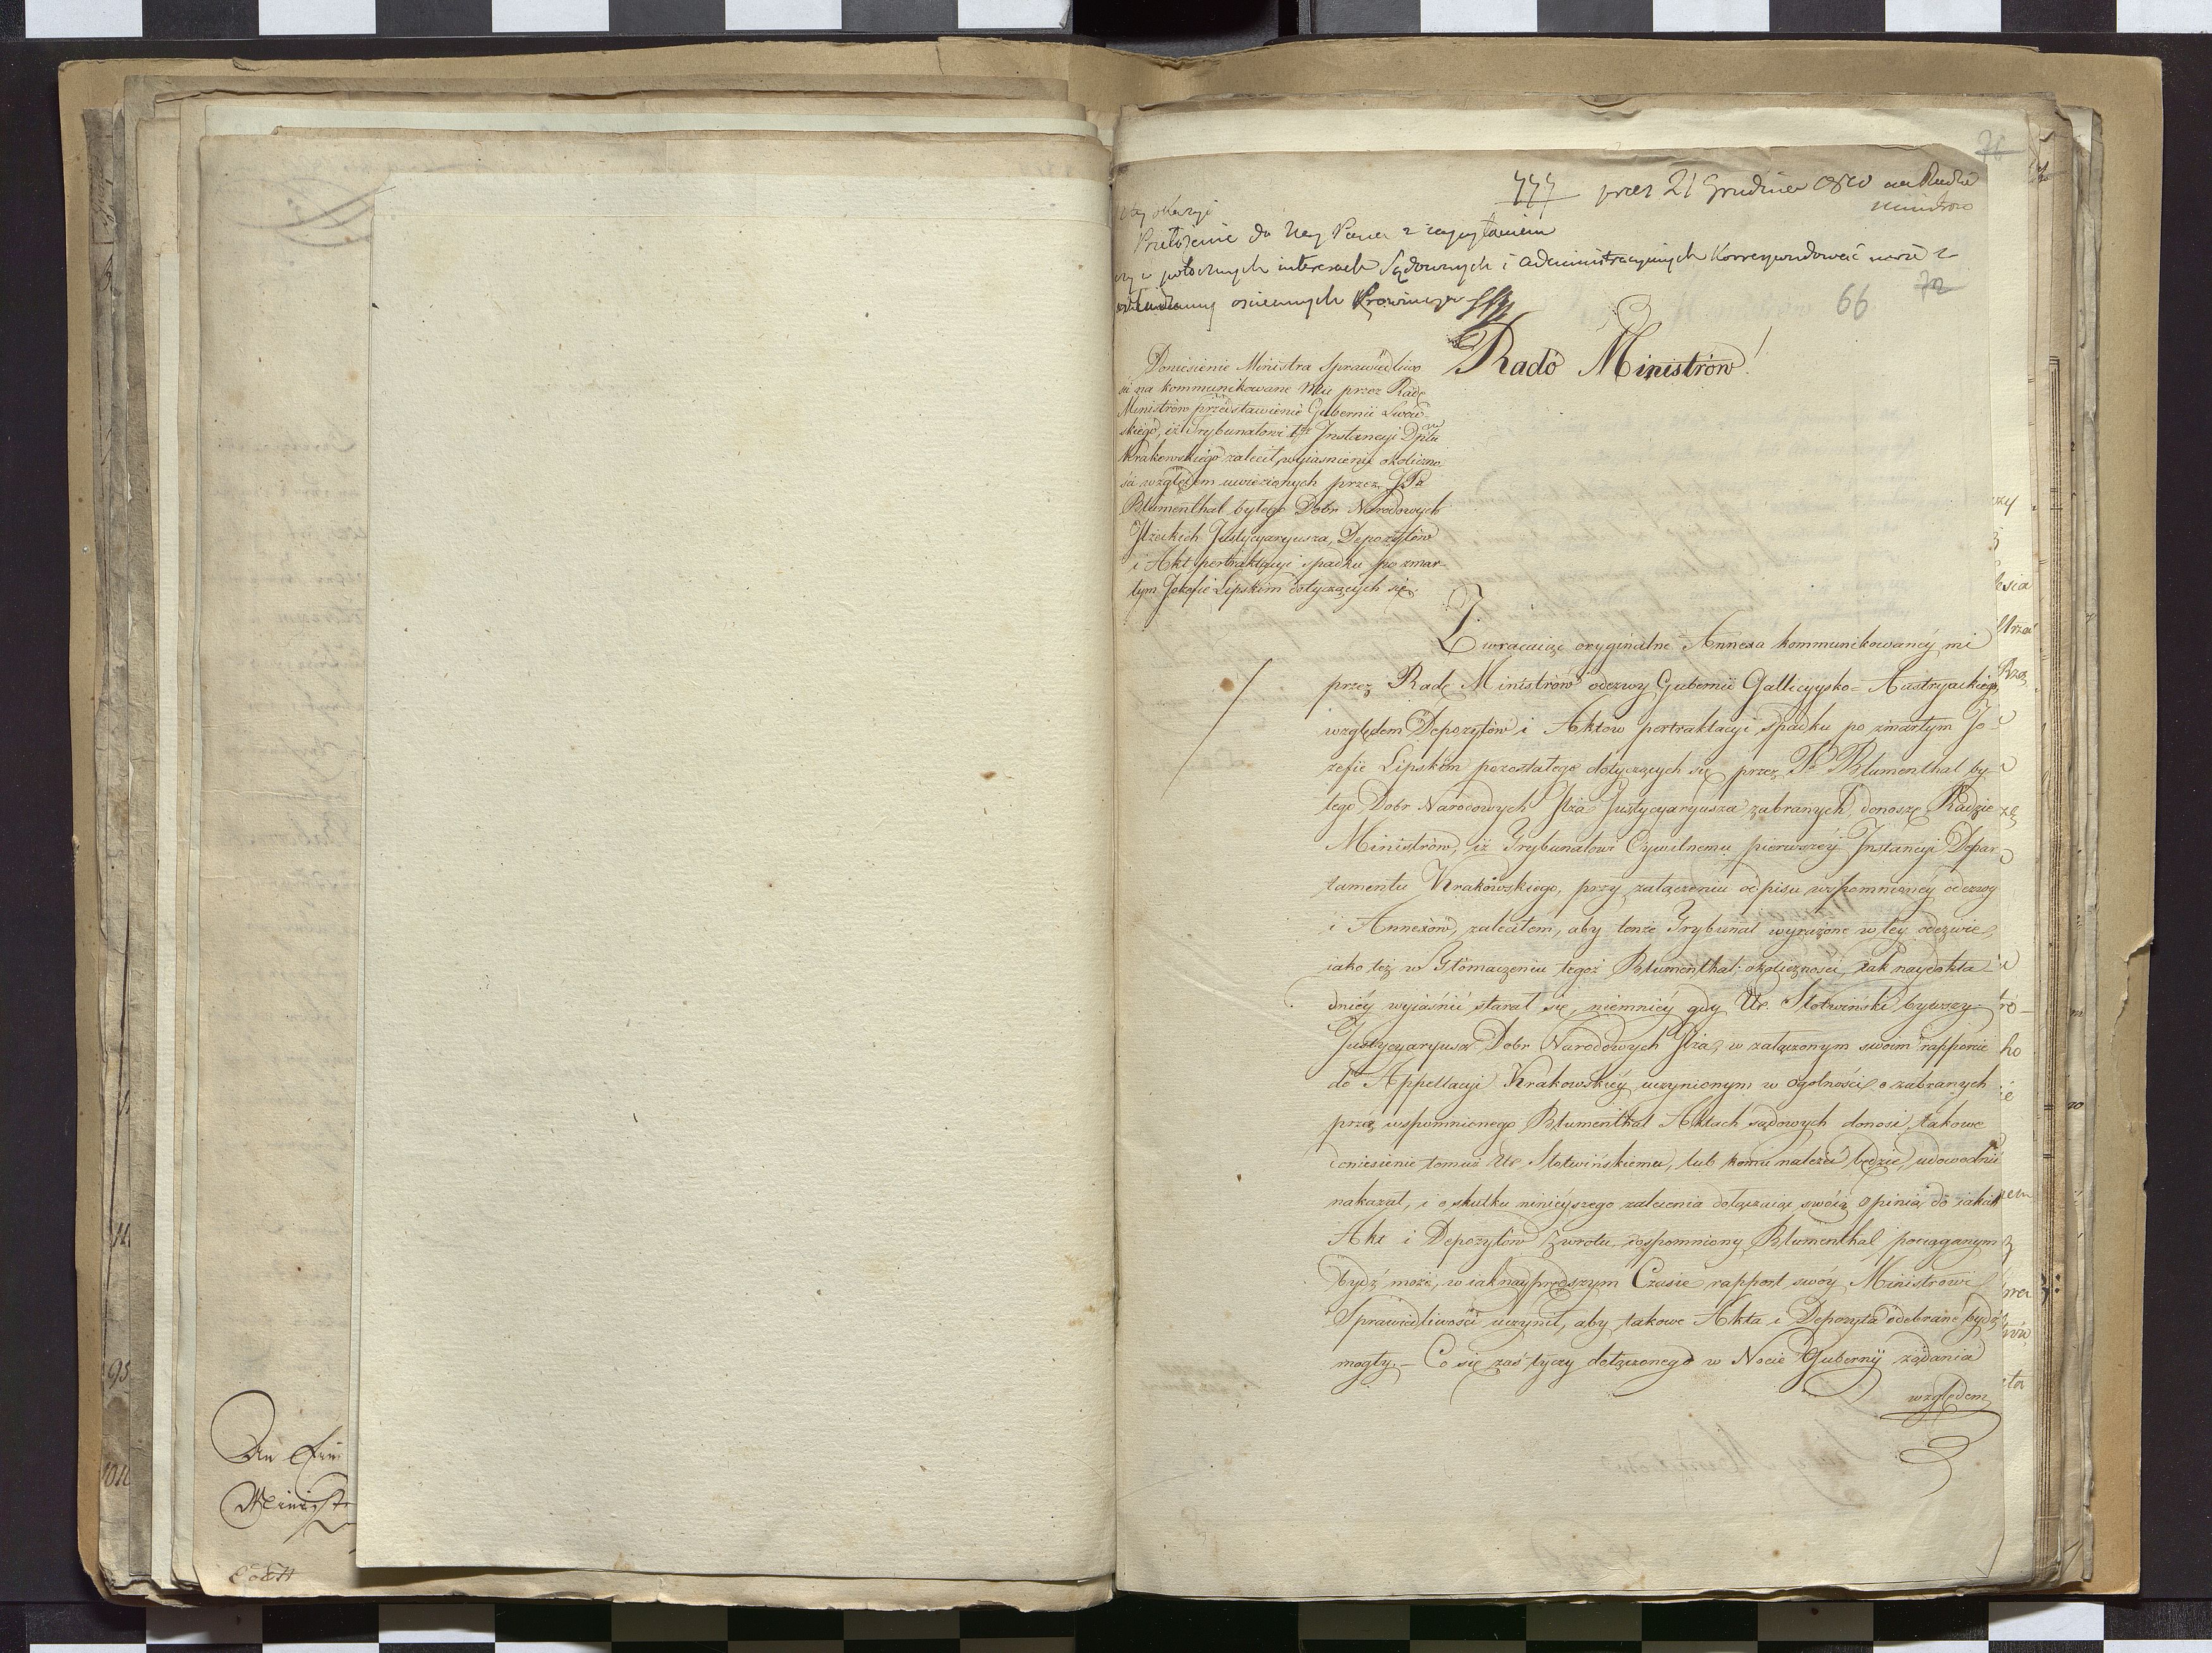 An
Minist
Lodtt
777 prez 21 Grudnia 1810 na Radzie
Ministrow
76
Przełożenie do Nay Pana z zapytaniem
czy w potocznych interesach Sądownych i administracyinych Korrespondować może z
ościennych Prowincyi
66
72
Rado Ministrów!
Doniesienie Ministra Sprawiedliwo
ści na kommunikowane Mu przez Radę
Ministrów przedstawienie Gubernii Lwow-
skiego, iż Trybunałowi 1ey Instancyi Dptu
Krakowskiego zalecił wyiasnienie okoliczno
ści względem uwiezionych przez JPa
Blumenthal byłego Dobr Narodowych
Iłzeckich Justycyaryusza, Depozytów
i Akt pertraktacyi spadku po zmar-
łym Jozefie Lipskim dotyczących się.
Zwracaiąc oryginalne Annexa kommunikowanéy mi
przez Radę Ministrów odezwy Gubernii Gallicyysko-Austryackiego,
względem Depozytów i Aktow pertraktacyi spadku po zmarłym Jo-
zefie Lipskim pozostałego dotyczących się przez Pa Blumenthal by-
łego Dobr Narodowych Iłża Justycyaryusza zabranych, donoszę Radzie
Ministrów, iż Trybunałowi Cywilnemu pierwszéy Instancyi Depar-
tamentu Krakowskiego, przy załączeniu odpisu wspomnionéy odezwy
i Annexów, zaleciłem, aby tenże Trybunał wyrażone w tey odezwie,
iako też w Tłómaczeniu tegoż Blumenthal okoliczności, iak naydokła-
dniéy wyiaśnić starał się, niemniéy gdy Ur. Słotwiński bywszy
Justycyaryusz Dobr Narodowych Iłża, w załączonym swoim rapporcie
do Appellacyi Krakowskiéy uczynionym w ogolności o zabranych
przez wspomnionego Blumenthal Aktach sądowych donosi, takowe
doniesienie temuż Ur. Słotwińskiemu, lub komu należeć będzie, udowodnić
nakazał, i o skutku ninieyszego zalecenia dołączaiąc swóią opinią do iakich
Akt i Depozytów zwrotu wspomniony Blumenthal pociąganym
bydź może, w iak nayprędszym Czasie rapport swóy Ministrowi
Sprawiedliwości uczynił, aby takowe Akta i Depozyta odebrane bydź
mogły. – Co się zaś tyczy dołączonego w Nocie Gubernii żądania
względem